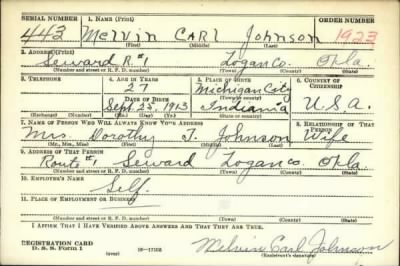 SERIAL NUMBER 1. NAME (Print) ORDER NUMBER
443 Melvin Carl Johnson 1923
(First) (Middle) (Last)
2. ADDRESS (Print)
Seward R.#1 Logan Co. Okla.
(Number and street or R. F. D. number) (Town) (County) (State)
3. TELEPHONE 4. AGE IN YEARS 5. PLACE OF BIRTH 6. COUNTRY OF CITIZENSHIP
27 Michigan City
DATE OF BIRTH (Town or county)
Sept. 25, 1913 Indiania U.S.A.
(Exchange) (Number) (Mo.) (Day) (Yr.) (State or country)
7. NAME OF PERSON WHO WILL ALWAYS KNOW YOUR ADDRESS 8. RELATIONSHIP OF THAT PERSON
Mrs. Dorothy J. Johnson Wife
(Mr., Mrs., Miss) (First) (Middle) (Last)
9. ADDRESS OF THAT PERSON
Route #1 Seward Logan Co. Okla.
(Number and street or R. F. D. number) (Town) (County) (State)
10. EMPLOYER'S NAME
Self
11. PLACE OF EMPLOYMENT OR BUSINESS
(Number and street or R. F. D. number) (Town) (County) (State)
I AFFIRM THAT I HAVE VERIFIED ABOVE ANSWERS AND THAT THEY ARE TRUE.
REGISTRATION CARD
D. S. S. Form 1 (over) 16—17105 Melvin Carl Johnson
(Registrant's signature)